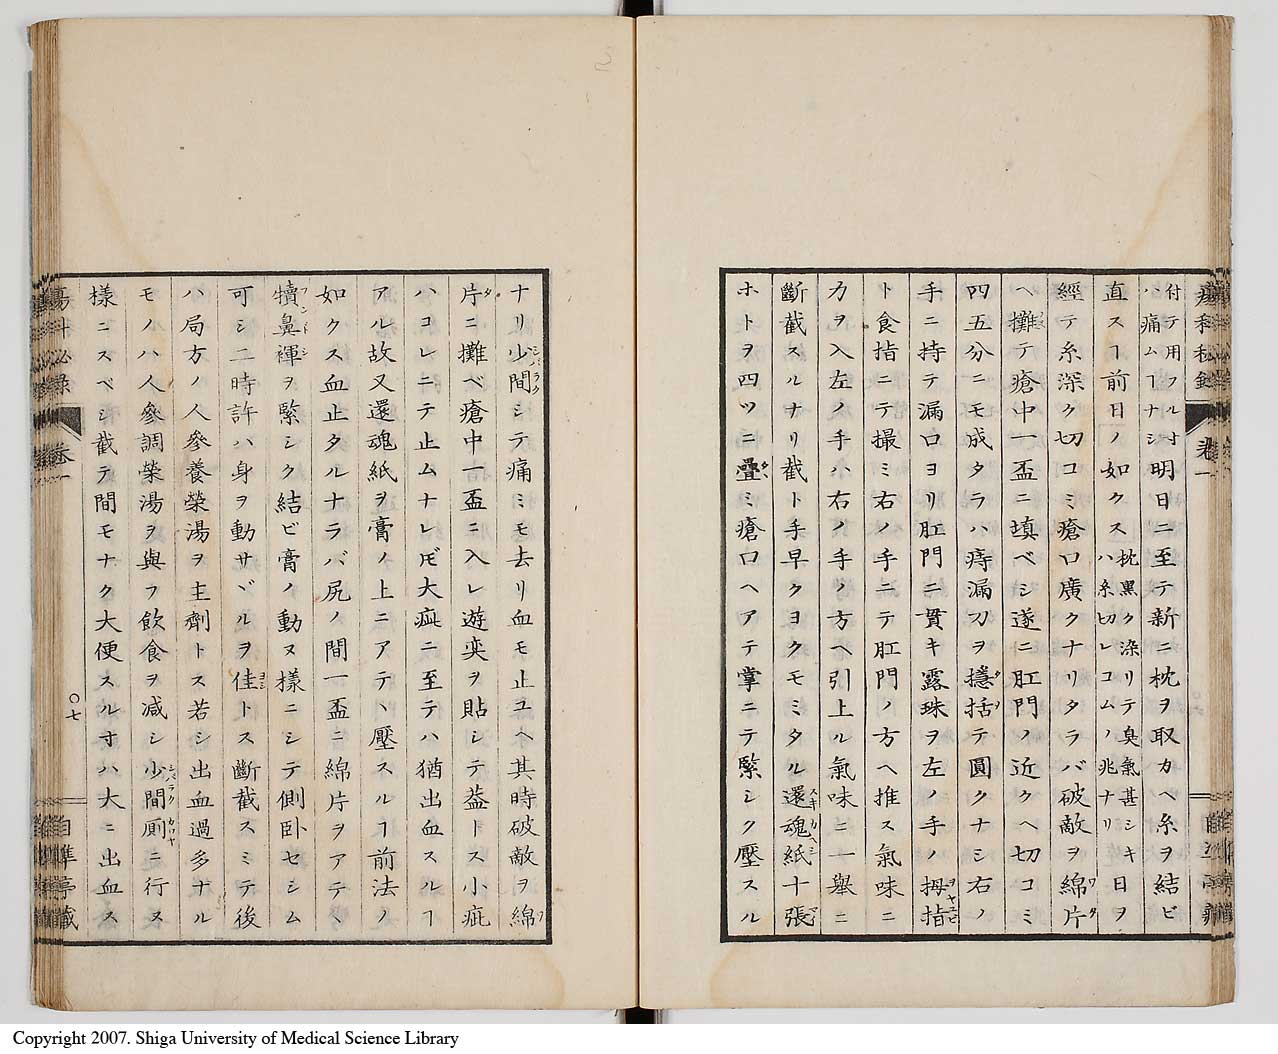 付テ用フル寸
ハ痛ムヿナシ
明日ニ至テ新ニ枕ヲ取カヘ糸ヲ結ビ
直スヿ前日ノ如クス
枕黒ク染リテ臭氣甚シキ日ヲ
ハ糸切レコムノ兆ナリ
經テ糸深ク切コミ瘡口廣クナリタラバ破敵ヲ綿片
ヘ攤テ瘡中一盃ニ填ベシ遂ニ肛門ノ近クヘ切コミ
四五分ニモ成タラハ痔漏刀ヲ檼括テ圓クナシ右ノ
手ニ持テ漏口ヨリ肛門ニ貫キ露珠ヲ左ノ手ノ拇指
ト食指ニテ撮ミ右ノ手ニテ肛門ノ方ヘ推ス氣味ニ
力ヲ入左ノ手ハ右ノ手ノ方ヘ引上ル氣味ニ一擧ニ
斷截スルナリ截ト手早クヨクモミタル還魂紙十張
ホトヲ四ツニ疊ミ瘡口ヘアテ掌ニテ緊シク壓スル
ナリ少間シテ痛ミモ去リ血モ止ユヘ其時破敵ヲ綿
片ニ攤ベ瘡中一盃ニ入レ遊奕ヲ貼シテ葢トス小疵
ハコレニテ止ムナレ𪜈大疵ニ至テハ猶出血スルヿ
アル故又還魂紙ヲ膏ノ上ニアテヽ壓スルヿ前法ノ
如クス血止タルナラバ尻ノ間一盃ニ綿片ヲアテヽ
犢鼻褌ヲ緊シク結ビ膏ノ動ヌ樣ニシテ側卧セシム
可シ二時許ハ身ヲ動サヾルヲ佳トス斷截スミテ後
ハ局方ノ人參養榮湯ヲ主劑トス若シ出血過多ナル
モノハ人參調榮湯ヲ與フ飲食ヲ減シ少間厠ニ行ヌ
樣ニスベシ截テ間モナク大便スル寸ハ大ニ出血ス
瘍科秘録
卷一
〇七
自準亭藏
Copyright 2007. Shiga University of Medical Science Library